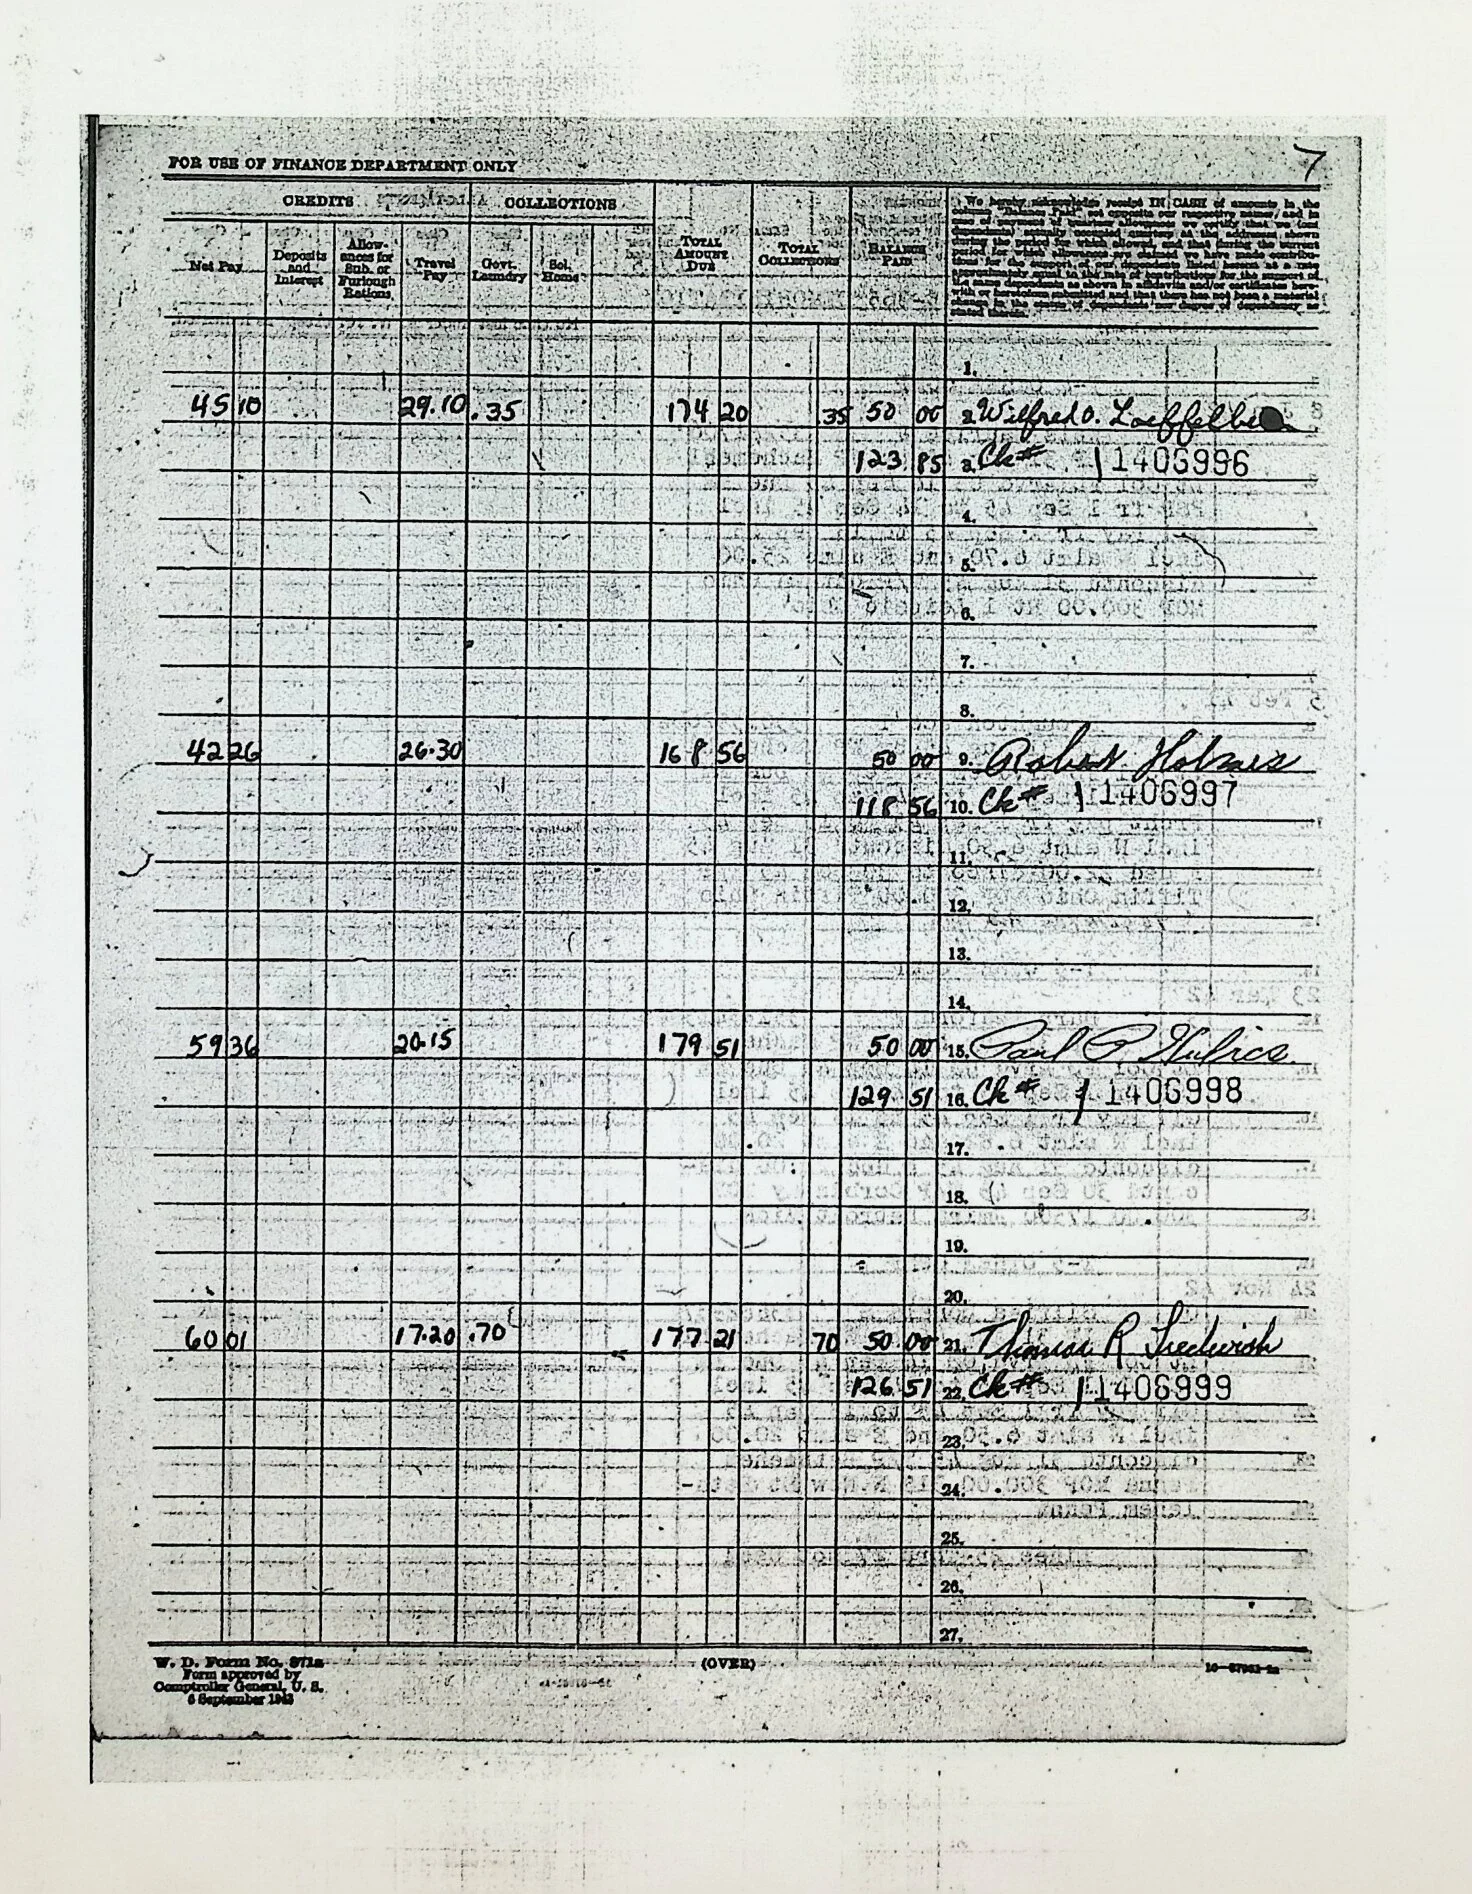 7
FOR USE OF FINANCE DEPARTMENT ONLY
CREDITS COLLECTIONS
Net Pay
Deposits and Interest
Allow-ances for Sub. or Furlough Rations
Travel Pay
Govt. Laundry
Sol. Home
TOTAL AMOUNT DUE
TOTAL COLLECTIONS
BALANCE PAID
We hereby acknowledge receipt IN CASH of amounts in the
column "Balance Paid" set opposite our respective names, and in
case of payment of monetary allowances we certify that we (and
dependents) actually occupied quarters at the addresses shown
during the period for which allowed, and that during the current
period for which allowances are claimed we have made contribu-
tions for the support of our dependents listed hereon at a rate
approximately equal to the rate of contributions for the support of
the same dependents as shown in affidavits and/or certificates here-
with or heretofore submitted and that there has not been a material
change in the status of dependents nor degree of dependency as
stated therein.
1.
45 10 29.10 .35 174 20 35 50 00 2. Wilfred O.
123 85 3. Ck# 11406996
4.
5.
6.
7.
8.
42 26 26.30 168 56 50 00 9. Robert Holmes
118 56 10. Ck# 11406997
11.
12.
13.
14.
59 36 20.15 179 51 50 00 15. Paul P. Hulics
129 51 16. Ck# 11406998
17.
18.
19.
20.
60 01 17.20 .70 177 21 70 50 00 21. Thomas R
126 51 22. Ck# 11406999
23.
24.
25.
26.
27.
W. D. Form No. 371a
Form approved by
Comptroller General, U. S.
(OVER)